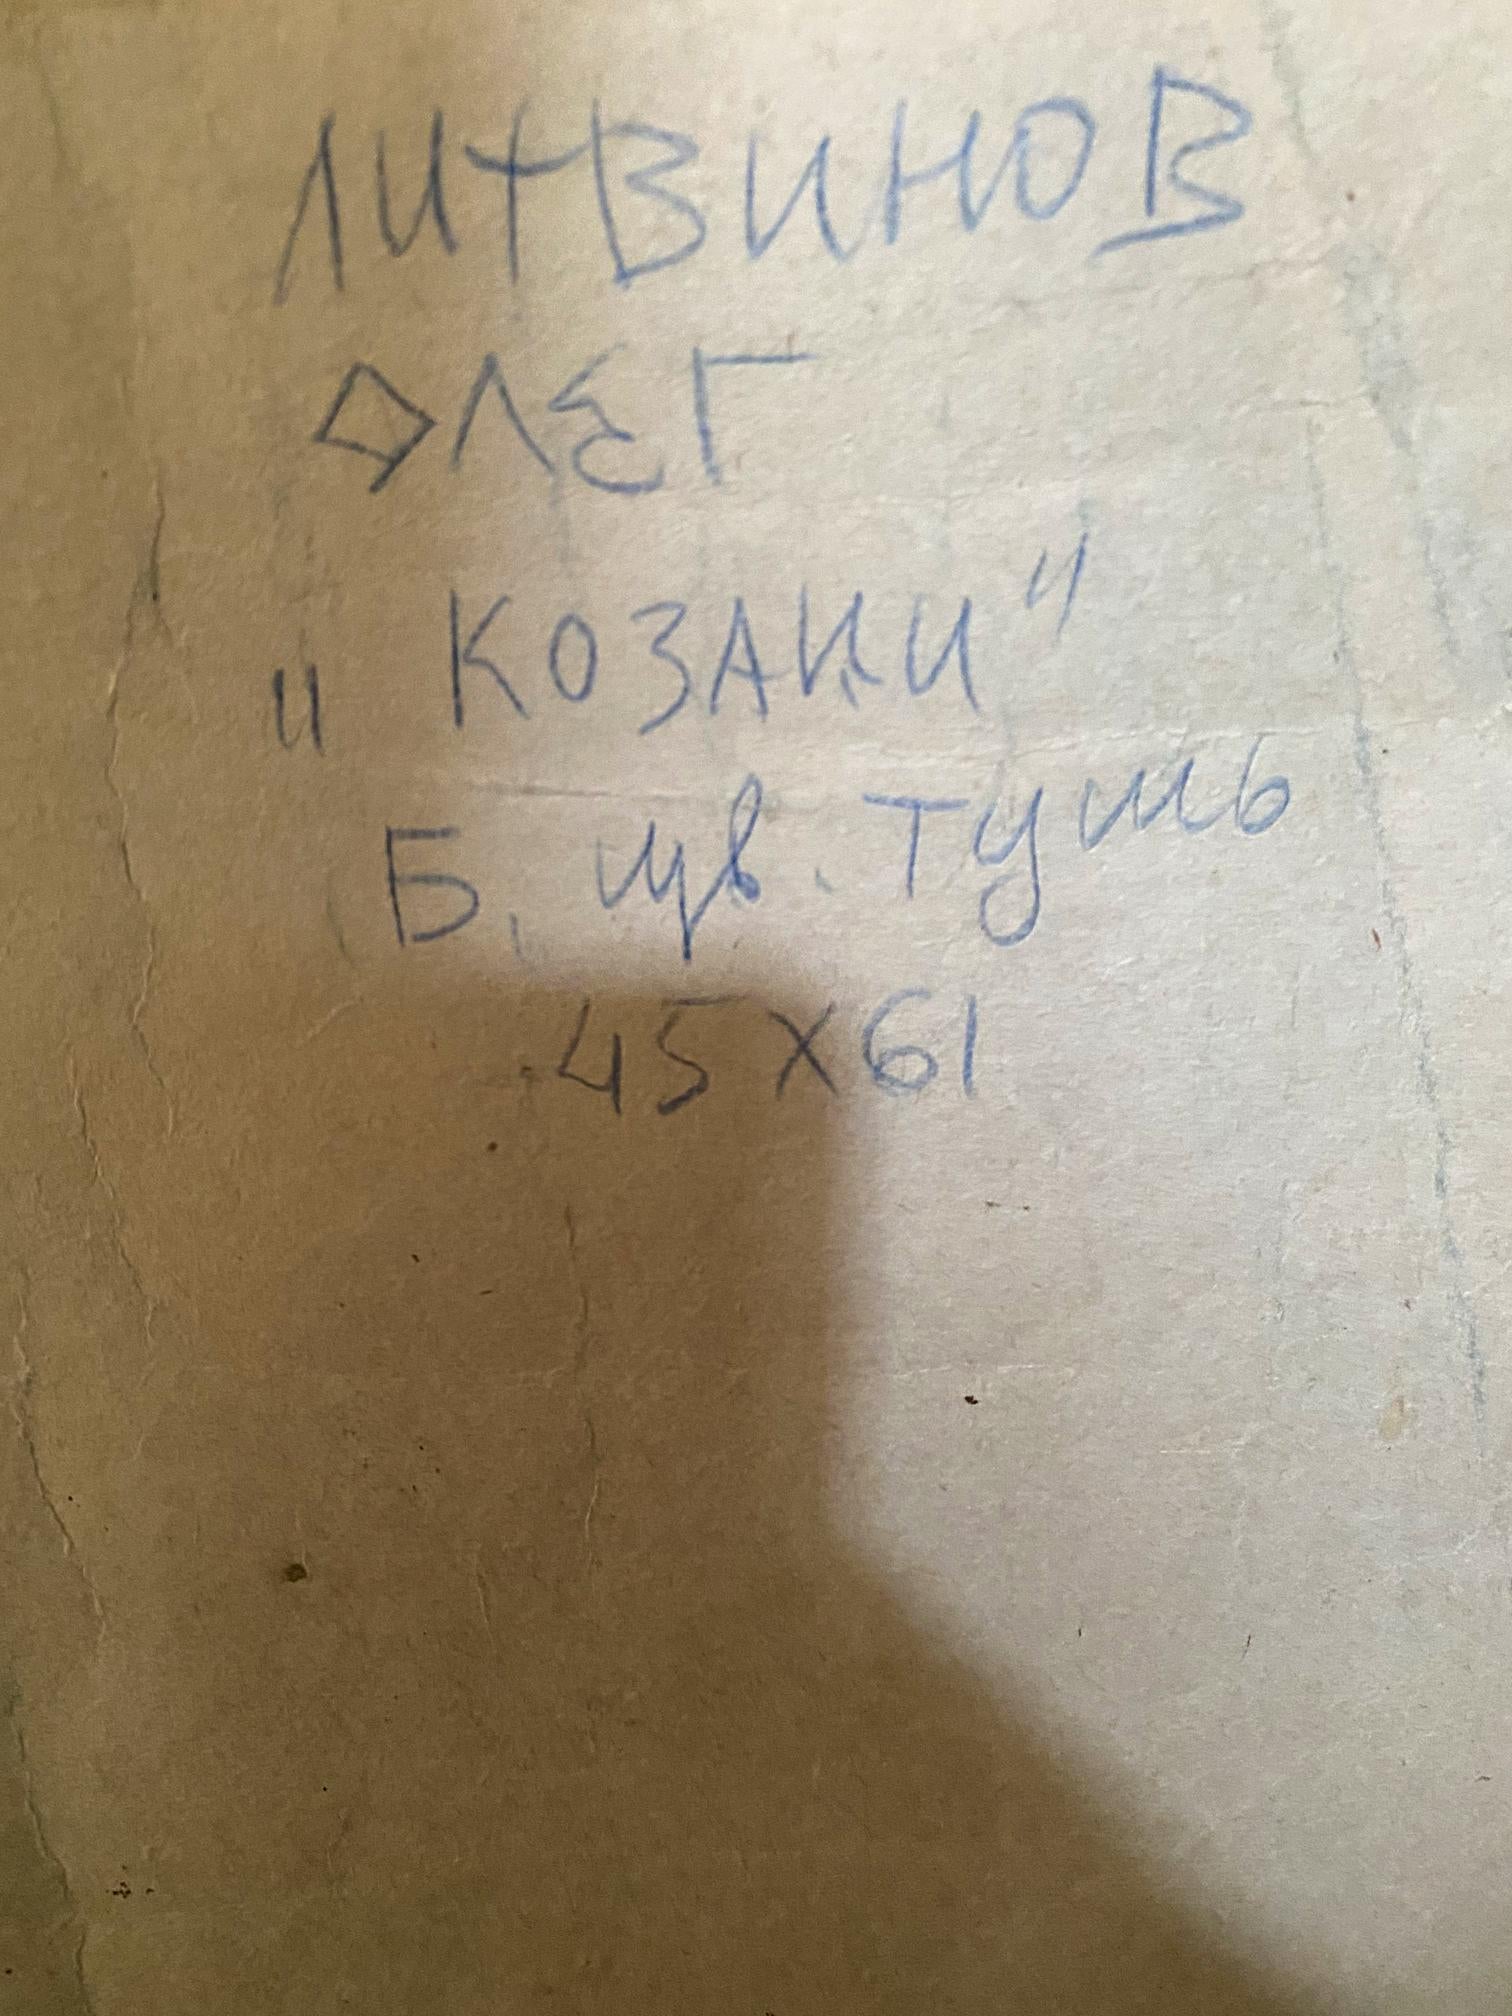 ЛИТВИНОВ
ОЛЕГ
„КОЗАКИ"
Б, цв. тушь
45х61